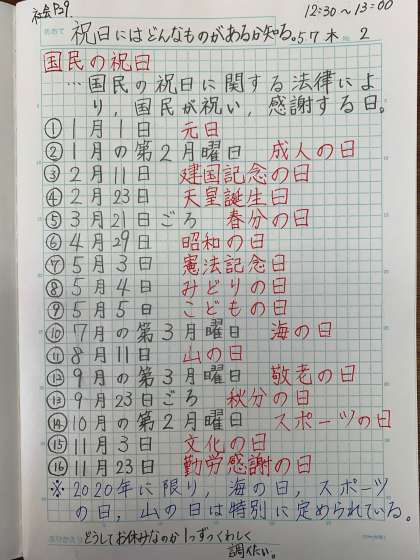 社会P.9
12:30～13:00
めあて 祝日にはどんなものがあるか知る。5 7 木 No. 2
国民の祝日
…国民の祝日に関する法律によ
り，国民が祝い，感謝する日。
①1月1日 元日
②1月の第2月曜日 成人の日
③2月11日 建国記念の日
④2月23日 天皇誕生日
⑤3月21日ごろ 春分の日
⑥4月29日 昭和の日
⑦5月3日 憲法記念日
⑧5月4日 みどりの日
⑨5月5日 こどもの日
⑩7月の第3月曜日 海の日
⑪8月11日 山の日
⑫9月の第3月曜日 敬老の日
⑬9月23日ごろ 秋分の日
⑭10月の第2月曜日 スポーツの日
⑮11月3日 文化の日
⑯11月23日 勤労感謝の日
※2020年に限り，海の日，スポーツ
の日，山の日は特別に定められている。
ふりかえり どうしてお休みなのか1つずつくわしく
調べたい。